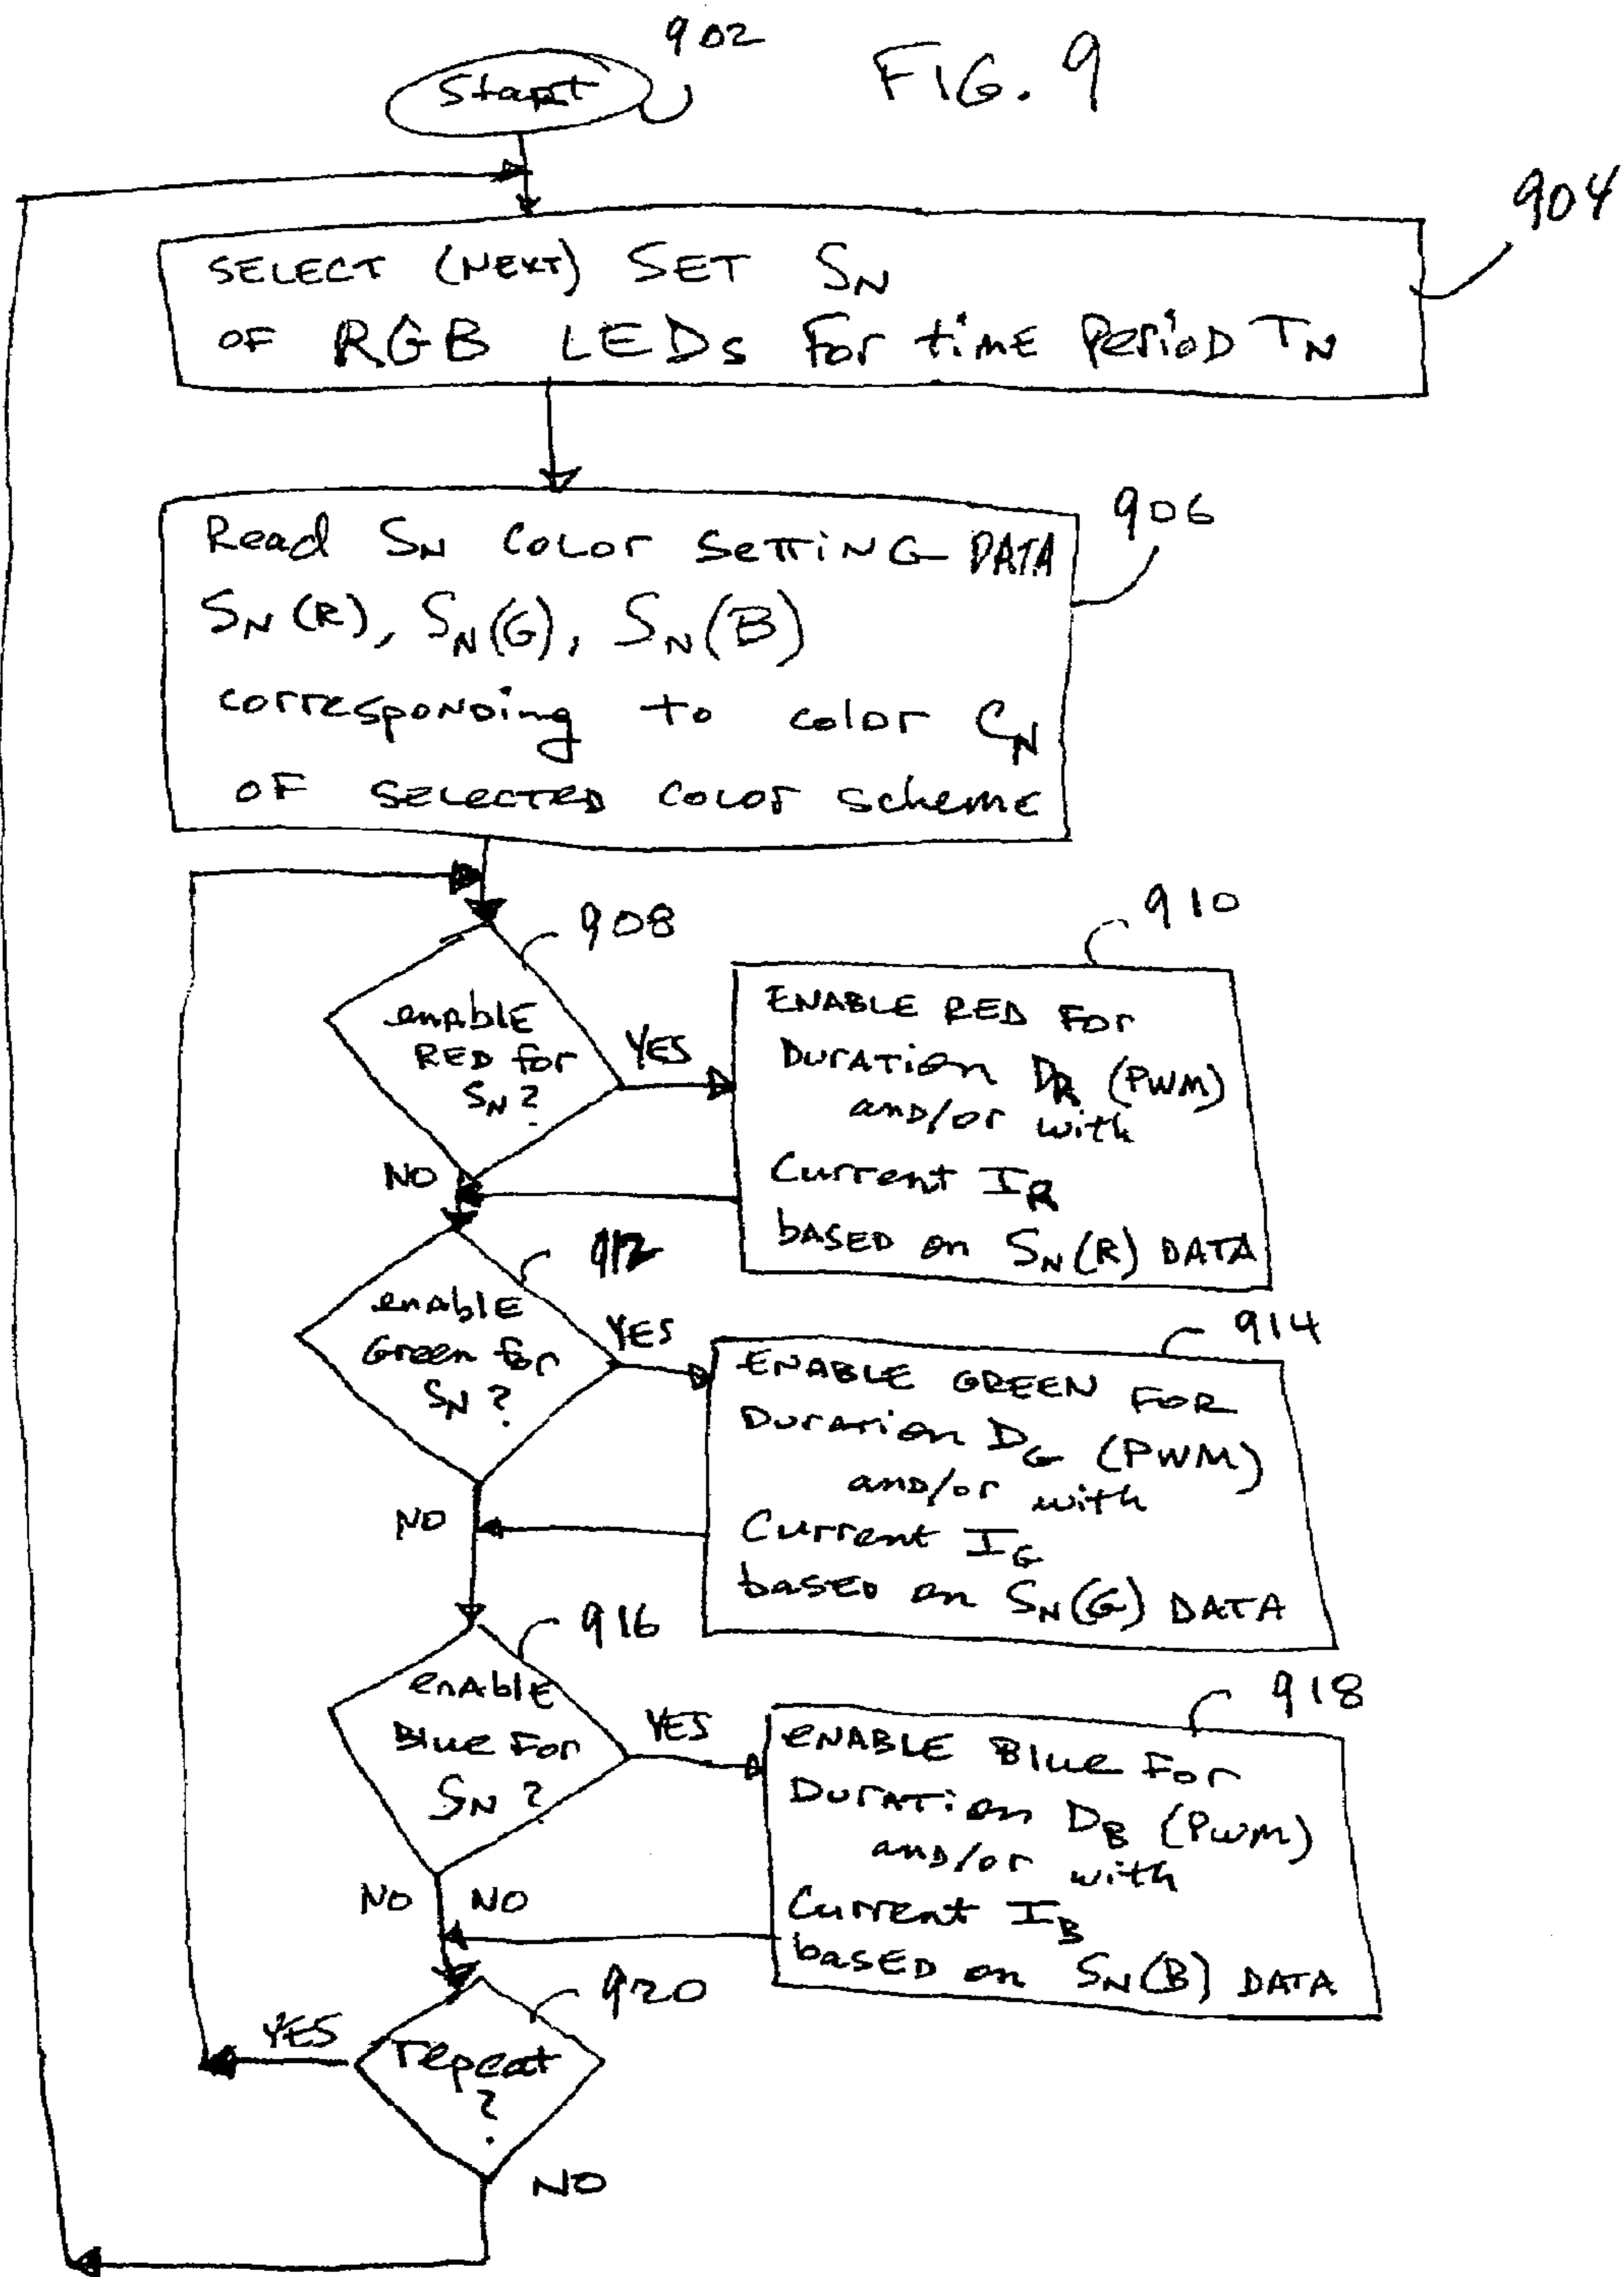 902
FIG. 9
Start
904
SELECT (NEXT) SET SN
OF RGB LEDs For time Period TN
906
Read SN Color Setting DATA
SN (R), SN (G), SN (B)
corresponding to color CN
OF SELECTED COLOR Scheme
908
910
enable
RED for
SN?
YES
NO
ENABLE RED FOR
Duration DR (PWM)
and/or with
Current IR
bASED on SN (R) DATA
912
914
enable
Green for
SN?
YES
NO
ENABLE GREEN FOR
Duration DG (PWM)
and/or with
Current IG
based on SN (G) DATA
916
918
enable
Blue For
SN?
YES
NO NO
ENABLE Blue For
Duration DB (PWM)
and/or with
Current IB
based on SN (B) DATA
920
YES
repeat
?
NO